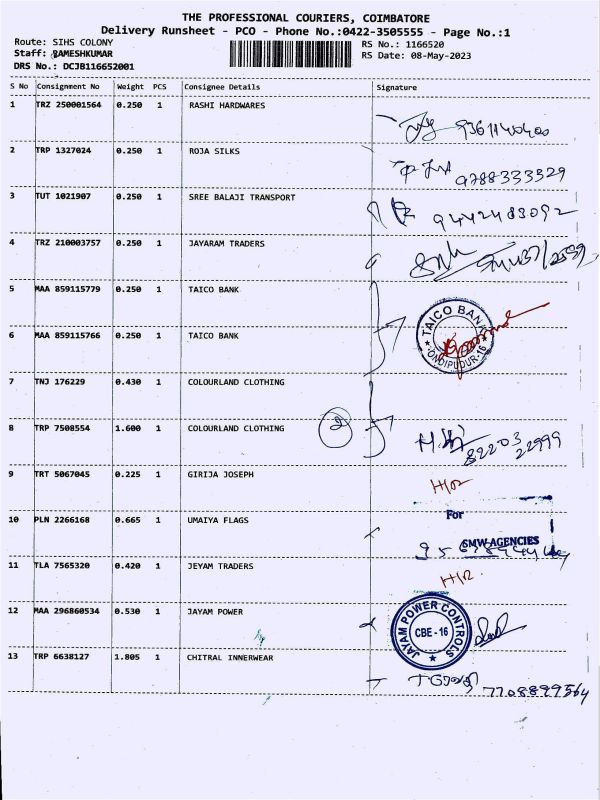 THE PROFESSIONAL COURIERS, COIMBATORE
Delivery Runsheet - PCO - Phone No.:0422-3505555 - Page No.:1
Route: SIHS COLONY RS No.: 1166520
Staff: RAMESHKUMAR RS Date: 08-May-2023
DRS No.: DCJB116652001
S No Consignment No Weight PCS Consignee Details Signature
1 TRZ 250001564 0.250 1 RASHI HARDWARES
2 TRP 1327024 0.250 1 ROJA SILKS
9788333329
3 TUT 1021907 0.250 1 SREE BALAJI TRANSPORT
9442483092
4 TRZ 210003757 0.250 1 JAYARAM TRADERS
5 MAA 859115779 0.250 1 TAICO BANK
TAICO BANK
6 MAA 859115766 0.250 1 TAICO BANK
ONDIPUDUR-16
7 TNJ 176229 0.430 1 COLOURLAND CLOTHING
8 TRP 7508554 1.600 1 COLOURLAND CLOTHING 2
82203
22999
9 TRT 5067045 0.225 1 GIRIJA JOSEPH
10 PLN 2266168 0.665 1 UMAIYA FLAGS
For
SMW AGENCIES
11 TLA 7565320 0.420 1 JEYAM TRADERS
12 MAA 296860534 0.530 1 JAYAM POWER
JAYAM POWER CONTROLS
CBE - 16
13 TRP 6638127 1.805 1 CHITRAL INNERWEAR
7708899564